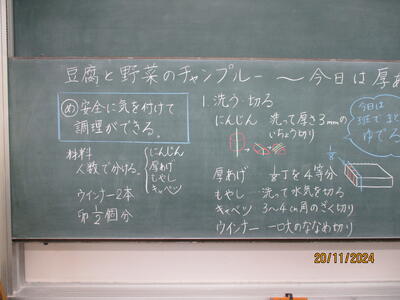 豆腐と野菜のチャンプルー 〜今日は厚あ
め 安全に気を付けて
調理ができる。
材料
人数で分ける。
にんじん
厚あげ
もやし
キャベツ
ウインナー2本
卵1/2個分
1.洗う・切る
にんじん 洗って厚さ3mmの
いちょう切り
厚あげ 1/8丁を4等分
もやし 洗って水気を切る
キャベツ 3〜4cm角のざく切り
ウインナー 一口大のななめ切り
今日は
班でまと
ゆでる
1/8
20/11/2024